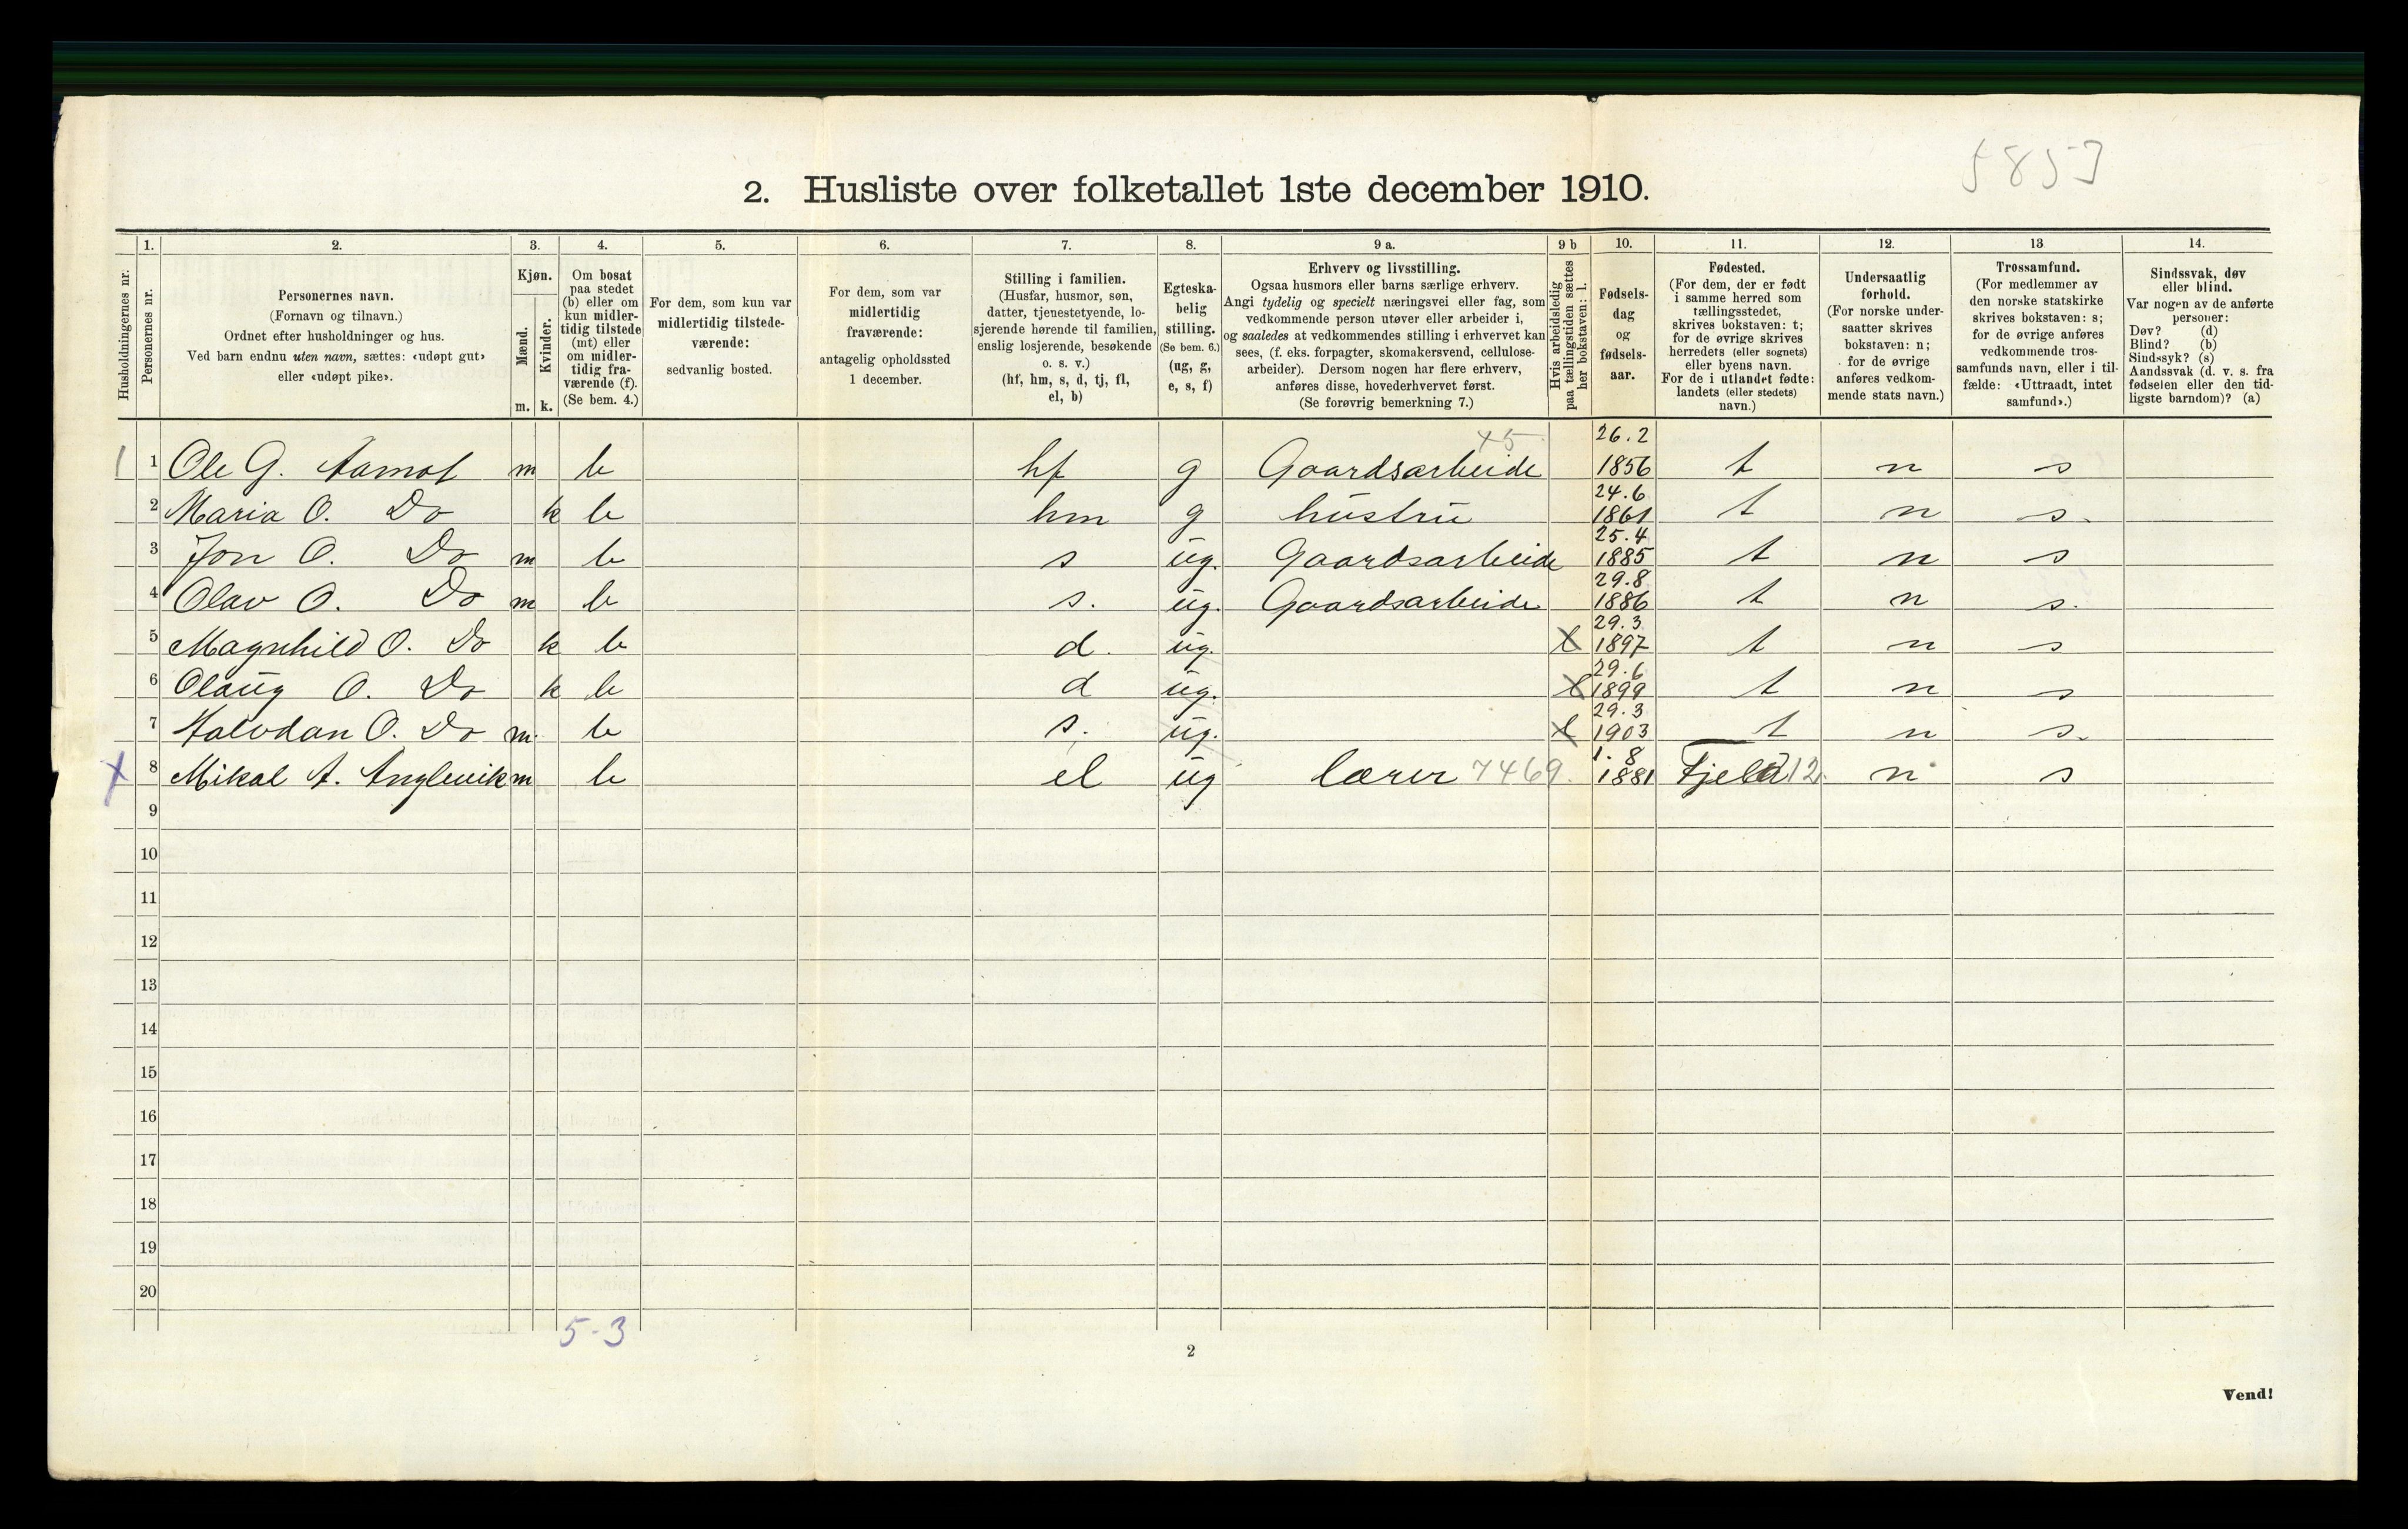 5853
2. Husliste over folketallet 1ste december 1910.
Husholdningernes nr.
1.
Personernes nr.
2.
Personernes navn.
(Fornavn og tilnavn.)
Ordnet efter husholdninger og hus.
Ved barn endnu uten navn, sættes: «udøpt gut»
eller «udøpt pike».
3.
Kjøn.
Mænd.
Kvinder.
m. k.
4.
Om bosat
paa stedet
(b) eller om
kun midler-
tidig tilstede
(mt) eller
om midler-
tidig fra-
værende (f).
(Se bem. 4.)
5.
For dem, som kun var
midlertidig tilstede-
værende:
sedvanlig bosted.
6.
For dem, som var
midlertidig
fraværende:
antagelig opholdssted
1 december.
7.
Stilling i familien.
(Husfar, husmor, søn,
datter, tjenestetyende, lo-
sjerende hørende til familien,
enslig losjerende, besøkende
o. s. v.)
(hf, hm, s, d, tj, fl,
el, b)
8.
Egteska-
belig
stilling.
(Se bem. 6.)
(ug, g,
e, s, f)
9 a.
Erhverv og livsstilling.
Ogsaa husmors eller barns særlige erhverv.
Angi tydelig og specielt næringsvei eller fag, som
vedkommende person utøver eller arbeider i,
og saaledes at vedkommendes stilling i erhvervet kan
sees, (f. eks. forpagter, skomakersvend, cellulose-
arbeider). Dersom nogen har flere erhverv,
anføres disse, hovederhvervet først.
(Se forøvrig bemerkning 7.)
9 b
Hvis arbeidsledig
paa tællingstiden sættes
her bokstaven: l.
10.
Fødsels-
dag
og
fødsels-
aar.
11.
Fødested.
(For dem, der er født
i samme herred som
tællingsstedet,
skrives bokstaven: t;
for de øvrige skrives
herredets (eller sognets)
eller byens navn.
For de i utlandet fødte:
landets (eller stedets)
navn.)
12.
Undersaatlig
forhold.
(For norske under-
saatter skrives
bokstaven: n;
for de øvrige
anføres vedkom-
mende stats navn.)
13
Trossamfund.
(For medlemmer av
den norske statskirke
skrives bokstaven: s;
for de øvrige anføres
vedkommende tros-
samfunds navn, eller i til-
fælde: «Uttraadt, intet
samfund».)
14.
Sindssvak, døv
eller blind.
Var nogen av de anførte
personer:
Døv? (d)
Blind? (b)
Sindssyk? (s)
Aandssvak (d. v. s. fra
fødselen eller den tid-
ligste barndom)? (a)
1 1 Ole G. Aamot m b hf g Gaardsarbeide x5 26.2 1856 t n s
2 Maria O. Do k b hm g hustru 24.6 1861 t n s.
3 Jon O. Do m b s ug. Gaardsarbeide 25.4 1885 t n s
4 Olav O. Do m b s. ug. Gaardsarbeide 29.8 1886 t n s.
5 Magnhild O. Do k b d. ug. l 29.3 1897 t n s
6 Olaug O. Do k b d ug. l 29.6 1899 t n s
7 Halvdan O. Do m. b s. ug. l 29.3 1903 t n s.
x 8 Mikal A. Anglevik m b el ug lærer 7469. 1.8 1881 Fjeld 12. n s
9
10
11
12
13
14
15
16
17
18
19
20
5-3
2
Vend!